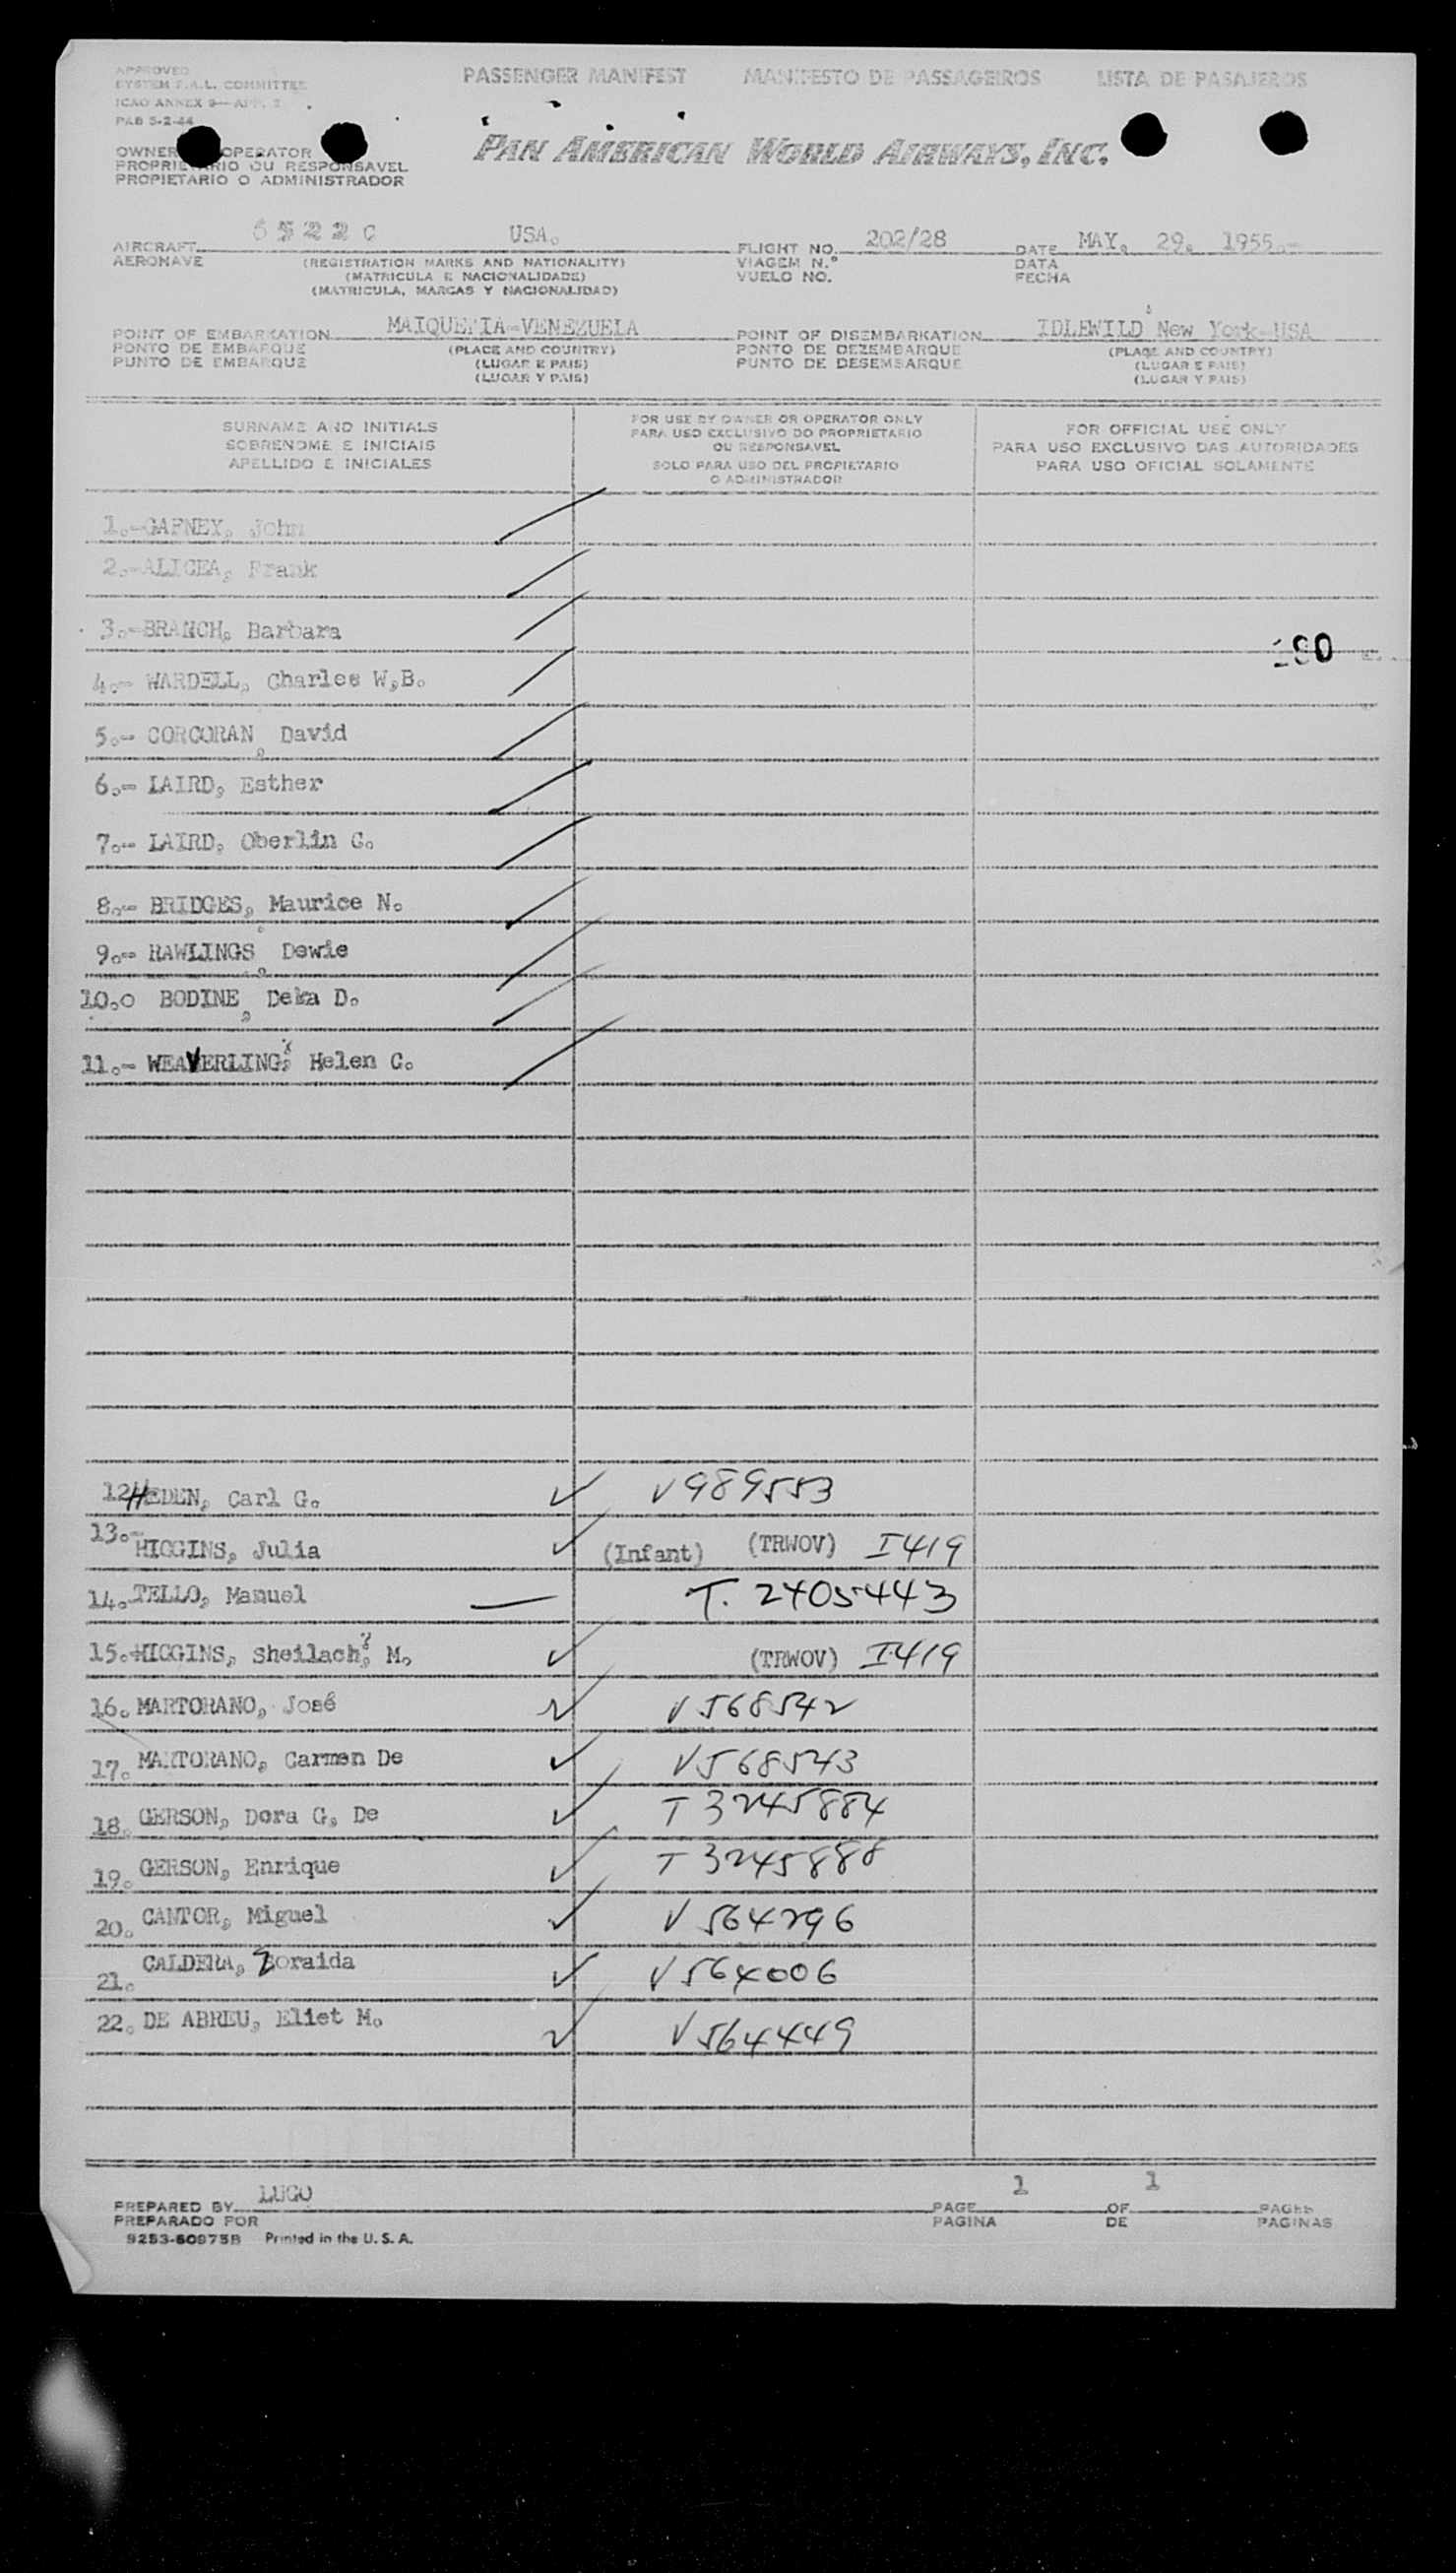 APPROVED
SYSTEM F.A.L. COMMITTEE
ICAO ANNEX 9— APP. 
PAB 5-2-44
PASSENGER MANIFEST MANIFESTO DE PASSAGEIROS LISTA DE PASAJEROS
PAN AMERICAN WORLD AIRWAYS, INC.
OWNER OPERATOR
PROPRIETARIO OU RESPONSAVEL
PROPIETARIO O ADMINISTRADOR
AIRCRAFT 6522C USA. FLIGHT NO. 202/28 DATE MAY. 29. 1955.-
AERONAVE (REGISTRATION MARKS AND NATIONALITY) VIAGEM N.º DATA
(MATRICULA E NACIONALIDADE) VUELO NO. FECHA
(MATRICULA, MARCAS Y NACIONALIDAD)
POINT OF EMBARKATION MAIQUETIA-VENEZUELA POINT OF DISEMBARKATION IDLEWILD New York-USA
PONTO DE EMBARQUE (PLACE AND COUNTRY) PONTO DE DEZEMBARQUE (PLACE AND COUNTRY)
PUNTO DE EMBARQUE (LUGAR E PAIS) PUNTO DE DESEMBARQUE (LUGAR E PAIS)
(LUGAR Y PAIS) (LUGAR Y PAIS)
SURNAME AND INITIALS
SOBRENOME E INICIAIS
APELLIDO E INICIALES
FOR USE BY OWNER OR OPERATOR ONLY
PARA USO EXCLUSIVO DO PROPRIETARIO
OU RESPONSAVEL
SOLO PARA USO DEL PROPIETARIO
O ADMINISTRADOR
FOR OFFICIAL USE ONLY
PARA USO EXCLUSIVO DAS AUTORIDADES
PARA USO OFICIAL SOLAMENTE
1.-GAFNEY, John
2.-ALICEA, Frank
3.-BRANCH, Barbara
4.- WARDELL, Charles W,B.
5.- CORCORAN, David
6.- LAIRD, Esther
7.- LAIRD, Oberlin C.
8.- BRIDGES, Maurice N.
9.- RAWLINGS, Dewie
10.o BODINE, Deka D.
11.- WEAVERLING, Helen C.
12 HEDEN, Carl G. V989553
13.- HIGGINS, Julia (Infant) (TRWOV) I419
14. TELLO, Manuel T. 2405443
15.-HIGGINS, Sheilach, M. (TRWOV) I419
16. MARTORANO, José V568542
17. MARTORANO, Carmen De V568543
18. GERSON, Dora G, De T 3245884
19. GERSON, Enrique T 3245888
20. CANTOR, Miguel V 564296
21. CALDERA, Zoraida V564006
22. DE ABREU, Eliet M. V564449
PREPARED BY LUGO PAGE 1 OF 1 PAGES
PREPARADO POR PAGINA DE PAGINAS
9253-60975B Printed in the U. S. A.